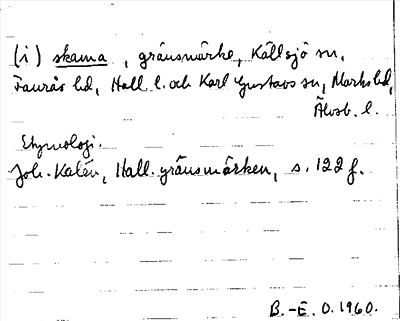 (i) skama, gränsmärke, Källsjö sn,
Faurås hd, Hall. l. och Karl Gustavs sn, Marks hd,
Älvsb. l.
Etymologi.
Joh. Kalén, Hall. gränsmärken, s. 122 f.
B.-E. O. 1960.